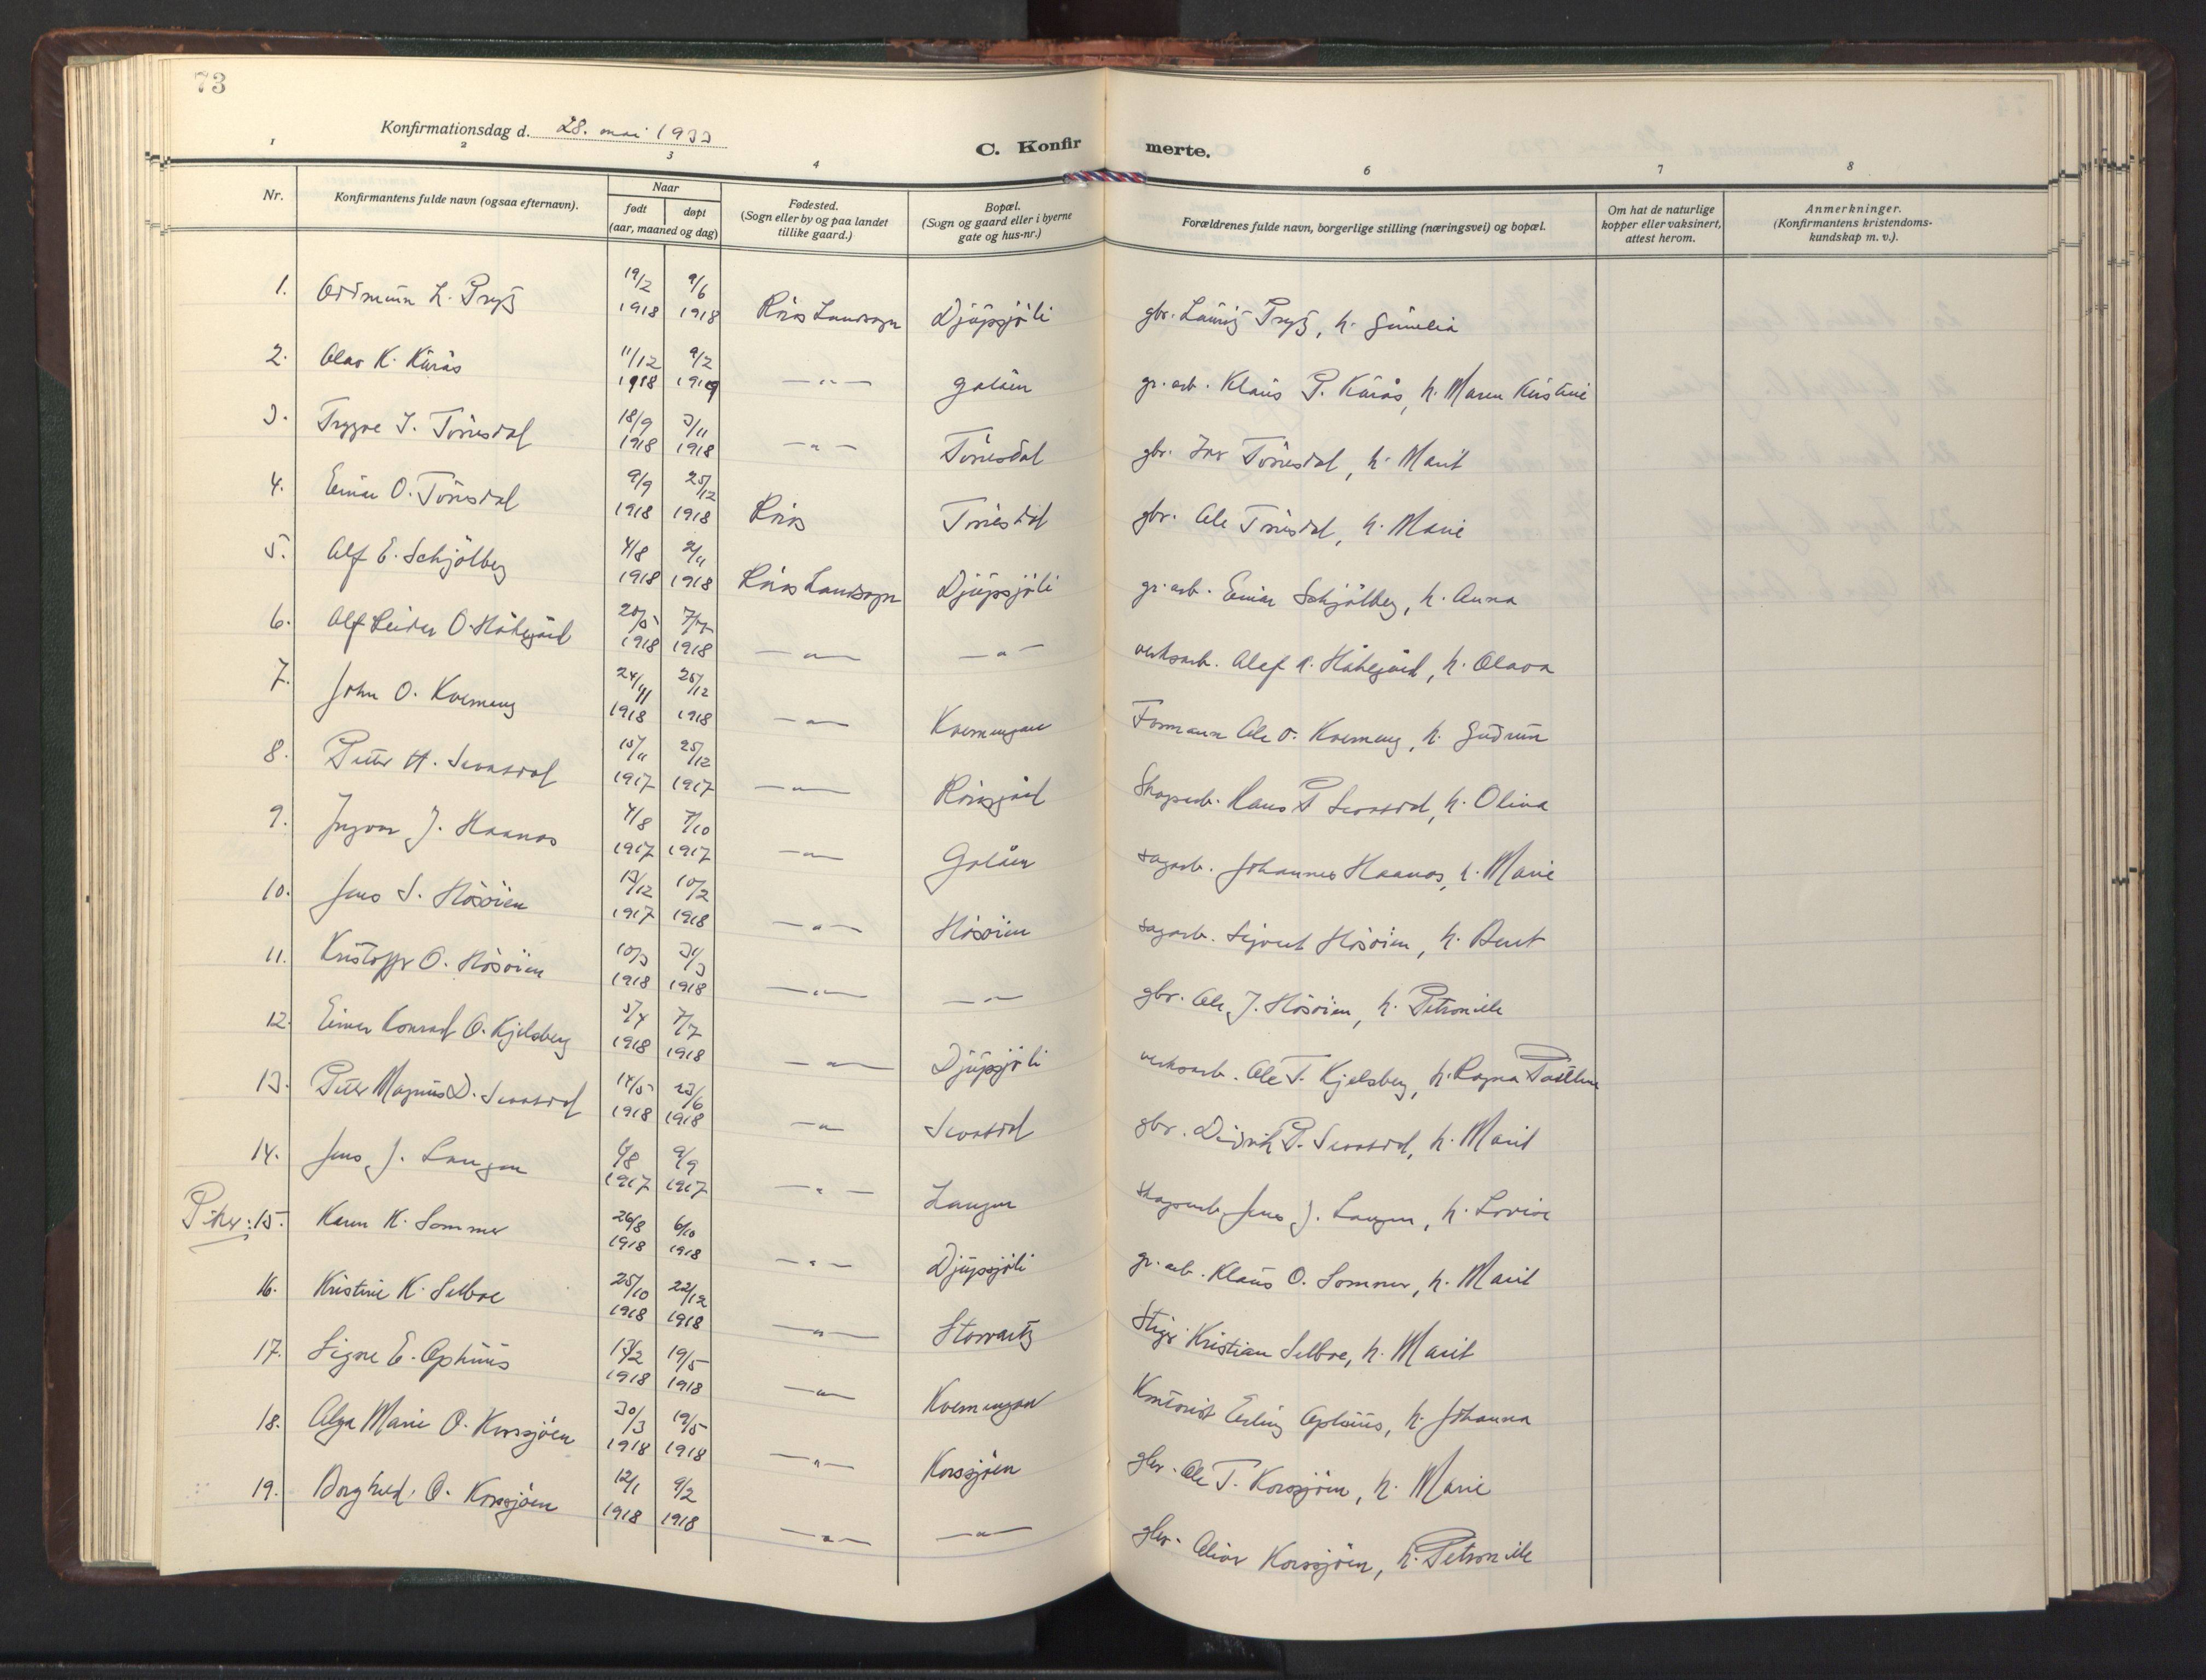 73
Konfirmationsdag d. 28. mai 1933
C. Konfirmerte.
1 2 3 4 6 7 8
Nr.
Konfirmantens fulde navn (ogsaa efternavn).
Naar
født døpt
(aar, maaned og dag)
Fødested.
(Sogn eller by og paa landet
tillike gaard.)
Bopæl.
(Sogn og gaard eller i byerne
gate og hus-nr.)
Forældrenes fulde navn, borgerlige stilling (næringsvei) og bopæl.
Om hat de naturlige
kopper eller vaksinert,
attest herom.
Anmerkninger.
(Konfirmantens kristendoms-
kundskap m. v.).
1. Oddmunn L. Prytz 19/2 1918 9/6 1918 Röros Landsogn Djüpsjöli gbr. Lauritz Prytz, h. Gunelia
2. Olav K. Kurås 11/12 1918 9/2 1919 —"— Galåen gr. arb. Klaus P. Kurås, h. Maren Kristine
3. Trygve I. Tönsetdal 18/9 1918 3/11 1918 —"— gbr. Ivar, h. Marit
4. Einar O. 9/9 1918 25/12 1918 Röros gbr. Ole, h. Marie
5. Alf E. Schjölberg 4/8 1918 1918 Röros Landsogn Djüpsjöli gr. arb. Einar Schjölberg, h. Anna
6. Alf Reidar O. Håkegård 20/5 1918 1918 —"— —"— verksarb. Olaf Håkegård, h. Olava
7. John O. Kverneng 24/11 1918 25/12 1918 —"— Kvernengan Formann Ole O. Kverneng, h. Gudrun
8. Petter H. 15/11 1917 25/12 1917 —"— Rörosgård Hans P., h. Oliva
9. Ingvar J. Haanas 4/8 1917 7/10 1917 —"— Galåen sagarb. Johannes Haanas, h. Marie
10. Jens S. Hösöien 12 1917 10/2 1918 —"— Hösöien sagarb. Sigvart Hösöien, h. Beret
11. Kristoffer O. Hösöien 10/3 1918 31/3 1918 —"— —"— gbr. Ole J. Hösöien, h. Petronille
12. Einar Konrad O. Kjelsberg 5/4 1918 7/7 1918 —"— Djüpsjöli verksarb. Ole T. Kjelsberg, h. Ragna
13. Petter Magnus D. 14/5 1918 23/6 1918 —"— gbr. Didrik P., h. Marit
14. Jens J. Langen 1917 9/9 1917 —"— Langen Jens J. Langen, h. Lovise
Piker: 15. Karen K. Sommer 26/8 1918 6/10 1918 —"— Djüpsjöli gr. arb. Klaus O. Sommer, h. Marit
16. Kristine K. Selboe 25/10 1918 22/12 1918 —"— Storvartz Stiger Kristian Selboe, h. Marit
17. Signe E. Ophuus 2 1918 19/5 1918 —"— Kvernengan Kontorist Erling Ophuus, h. Johanna
18. Olga Marie O. Korssjöen 30/3 1918 19/5 1918 —"— Korssjöen gbr. Ole T. Korssjöen, h. Marie
19. Borghild O. Korssjöen 12/1 1918 9/2 1918 —"— —"— gbr. Oliver Korssjöen, h. Petronille